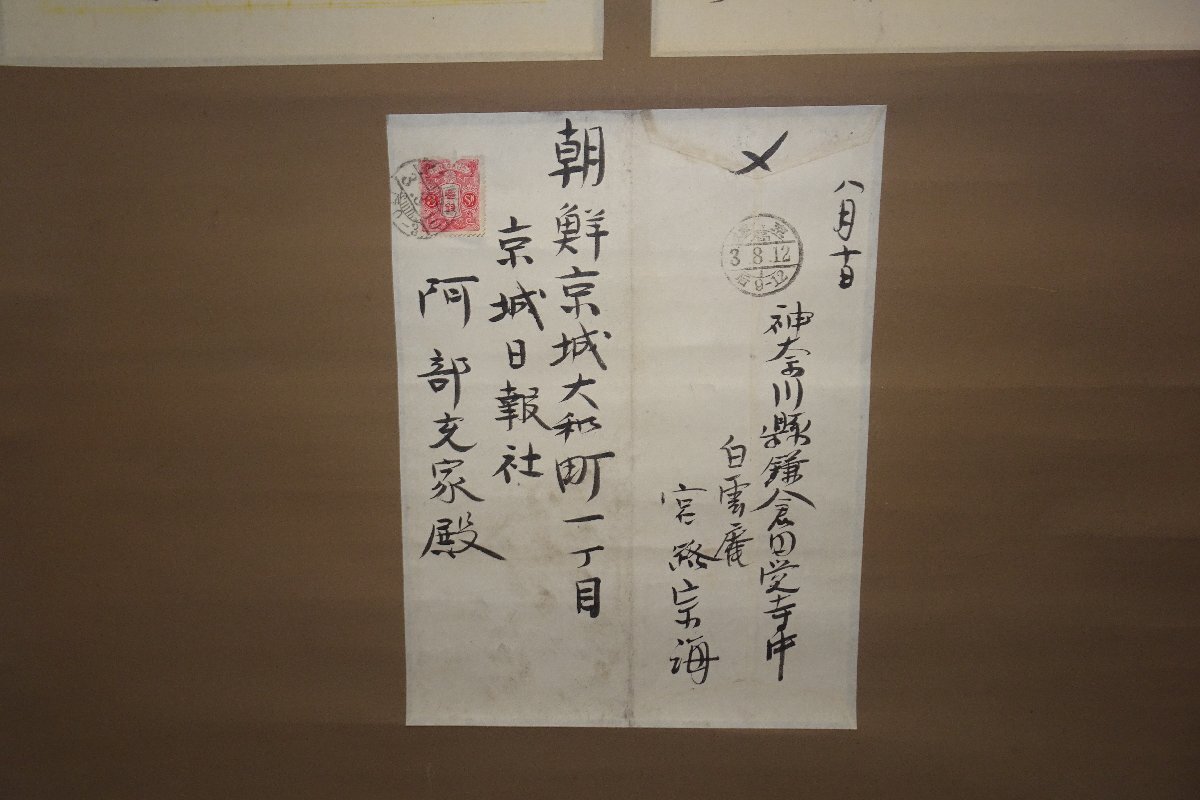 八月十日
神奈川縣鎌倉円覚寺中
白雲庵
宮路宗海
〆
3.8.12
后9-12
朝鮮京城大和町一丁目
京城日報社
阿部充家殿